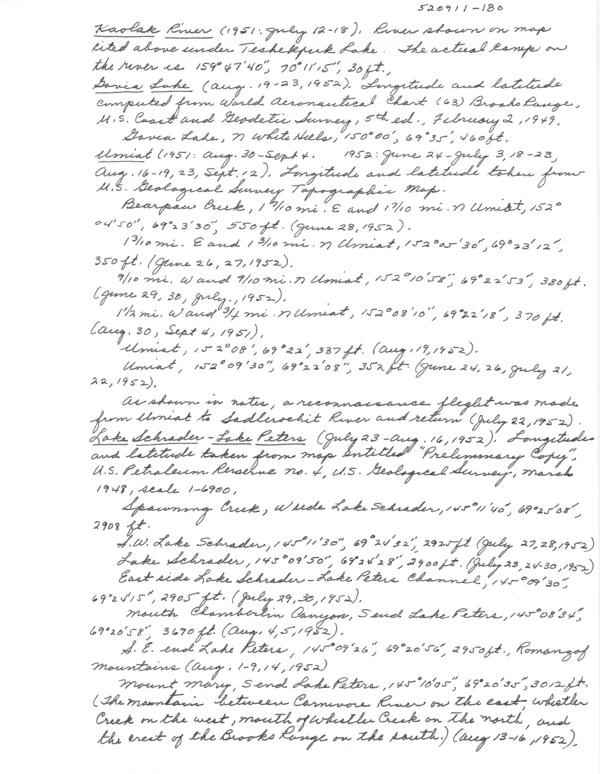 520911-180
Kaolak River (1951: July 12-18). River shown on map
cited above under Teshekpuk Lake. The actual camp on
the river is 159°47'40", 70°11'15", 30 ft.,
Gavia Lake (Aug. 19-23, 1952). Longitude and latitude
computed from World Aeronautical Chart (63) Brooks Range,
U.S. Coast and Geodetic Survey, 5th ed., February 2, 1949.
Gavia Lake, N White Hills, 150°00', 69°35', 460 ft.
Umiat (1951: Aug. 30-Sept 4. 1952: June 24-July 3, 18-23,
Aug. 16-19, 23, Sept. 12). Longitude and latitude taken from
U.S. Geological Survey Topographic Map.
Bearpaw Creek, 1 9/10 mi. E and 1 7/10 mi. N Umiat, 152°
04'50", 69°23'30", 550 ft. (June 28, 1952).
1 3/10 mi. E and 1 3/10 mi. N Umiat, 152°05'30", 69°23'12",
350 ft. (June 26, 27, 1952).
9/10 mi. W and 9/10 mi. N Umiat, 152°10'58", 69°22'53", 380 ft.
(June 29, 30, July., 1952).
1 1/2 mi. W and 3/4 mi. N Umiat, 152°08'10", 69°22'18", 370 ft.
(Aug. 30, Sept 4, 1951).
Umiat, 152°08', 69°22', 337 ft. (Aug. 19, 1952).
Umiat, 152°09'30", 69°22'08", 352 ft (June 24, 26, July 21,
22, 1952).
As shown in notes, a reconnaissance flight was made
from Umiat to Sadlerochit River and return (July 22, 1952).
Lake Schrader-Lake Peters (July 23-Aug. 16, 1952). Longitude
and latitude taken from map entitled "Preliminary Copy",
U.S. Petroleum Reserve no. 4, U.S. Geological Survey, March
1948, scale 1-6900.
Spawning Creek, W side Lake Schrader, 145°11'40", 69°25'08",
2908 ft.
S.W. Lake Schrader, 145°11'30", 69°24'32", 2925 ft (July 27, 28, 1952)
Lake Schrader, 145°09'50", 69°24'28", 2900 ft. (July 23, 24-30, 1952)
East side Lake Schrader-Lake Peters Channel, 145°09'30",
69°24'15", 2905 ft. (July 29, 30, 1952).
Mouth Chamberlin Canyon, S end Lake Peters, 145°08'34",
69°20'58", 3690 ft. (Aug. 4, 5, 1952).
S. E. end Lake Peters, 145°09'26", 69°20'56", 2950 ft., Romanzof
Mountains (Aug. 1-9, 14, 1952)
Mount Mary, S end Lake Peters, 145°10'05", 69°20'35", 3012 ft.
(The mountain between Carnivore River on the east, Whistler
Creek on the west, mouth of Whistler Creek on the north, and
the crest of the Brooks Range on the south.) (Aug 13-16, 1952).